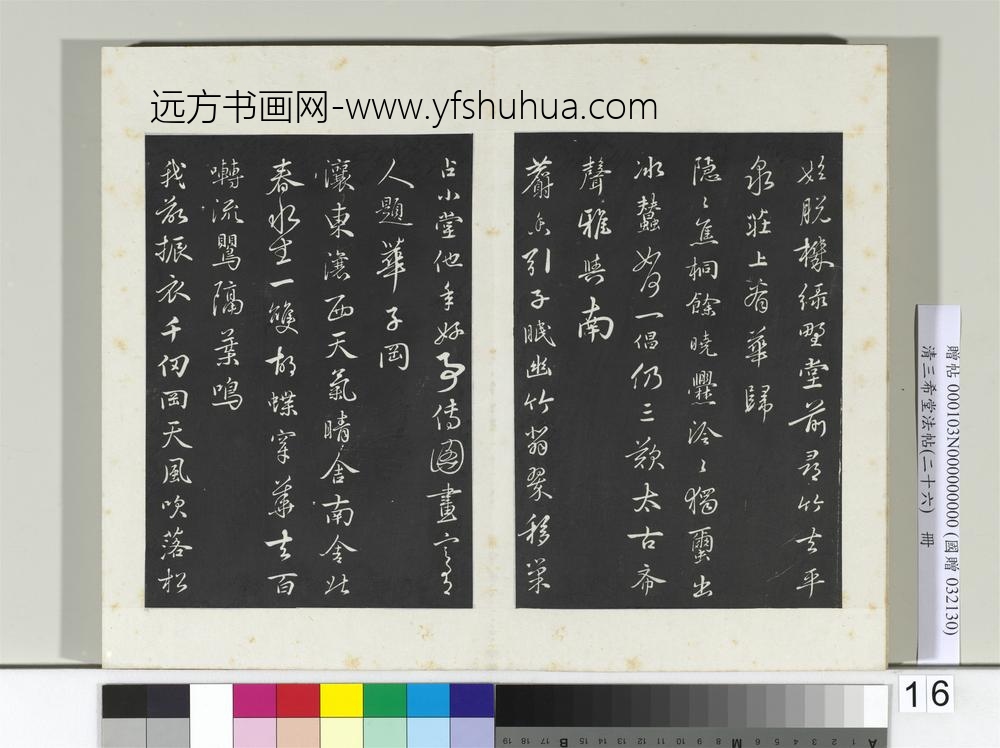 远方书画网-www.yfshuhua.com
始脱襟绿野堂前寻竹去平
泉莊上看華歸
隐〻焦桐餘晓爨泠〻獨蠒出
冰蠶如何一倡仍三歎太古希
聲雅與南
麝香引子眠幽竹翡翠移巢
占小堂他年好事传图畫
人題華子岡
瀼東瀼西天氣晴舍南舍北
春水生一雙胡蝶穿華去百
囀流鶯隔葉鳴
我欲振衣千仞岡天風吹落松
贈帖 000103N000000000 (國贈 032130)
清三希堂法帖(二十六) 冊
16